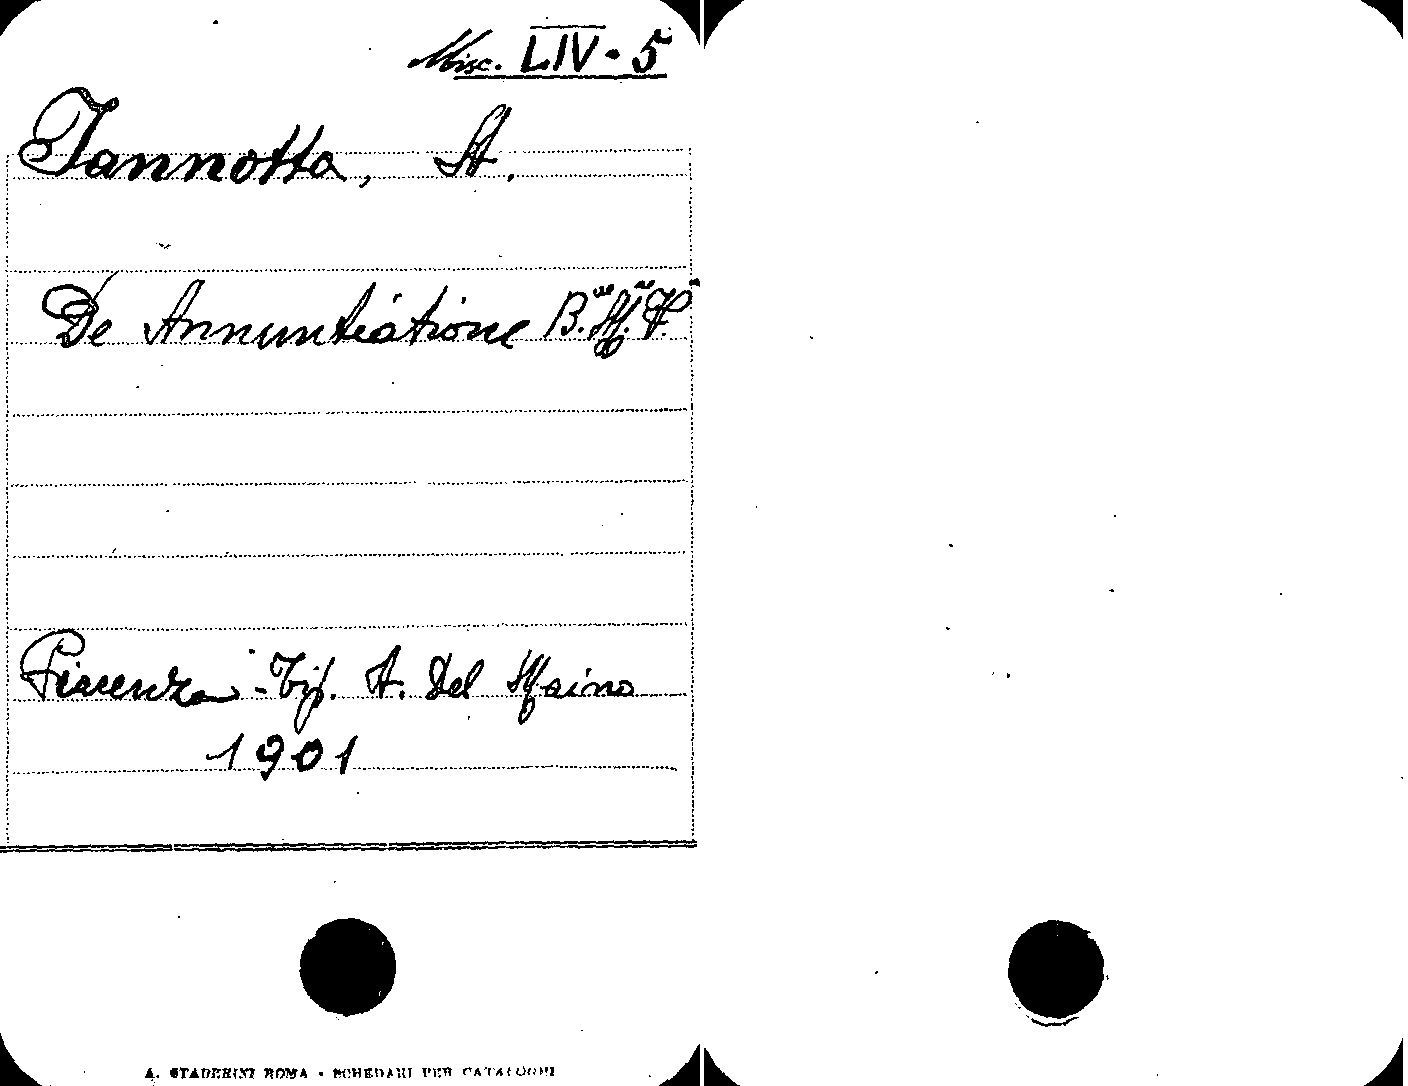 Misc. LIV - 5
Iannotta, A.
De Annuntiatione B.ae M.ae V.ae
Piacenza - Tip. A. Del Maino
1901
A. STADERINI ROMA - SCHEDARI PER CATALOGHI